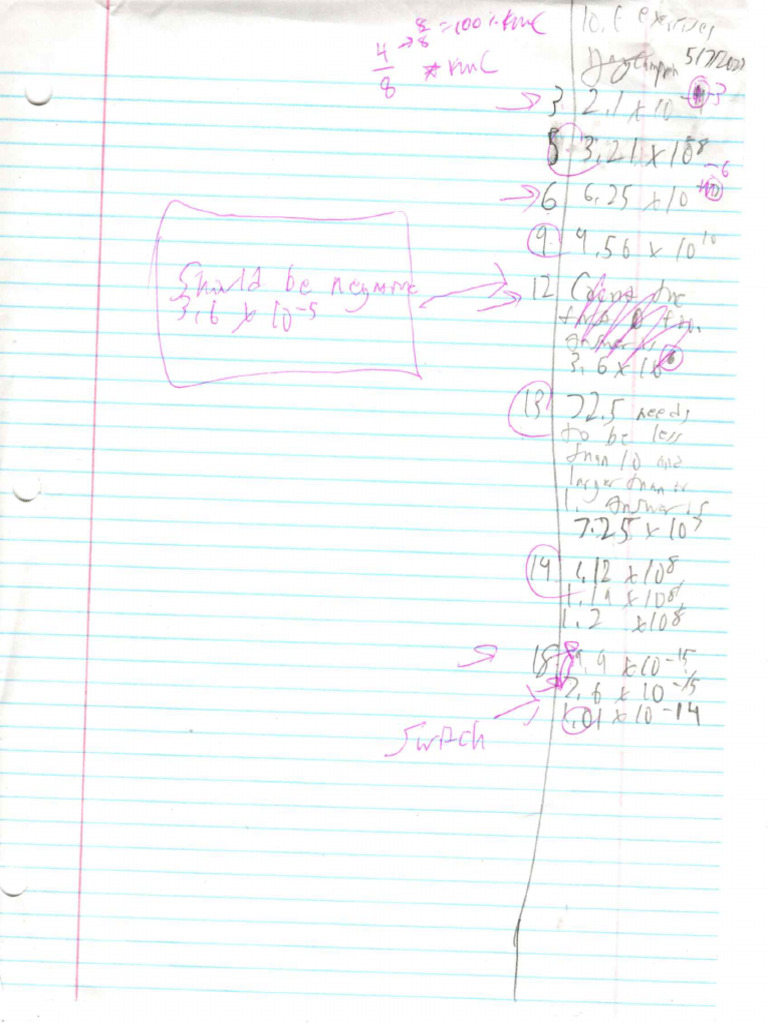 8 = 100%
4 → 8
8
10.6 exercises
5/7/2022
→ 3 2.1 x 10 -3
5 3.21 x 10 8
→ 6 6.25 x 10 -6
9 9.56 x 10 10
Should be negative
3.6 x 10 -5
→ 12
answer is
3.6 x 10
13 72.5 needs
to be less
than 10 and
larger than
1. Answer is
7.25 x 10 7
14 1.12 x 10 8
1.19 x 10 8
1.2 x 10 8
→ 18 9.9 x 10 -15
7.6 x 10 -15
1.01 x 10 -14
Switch